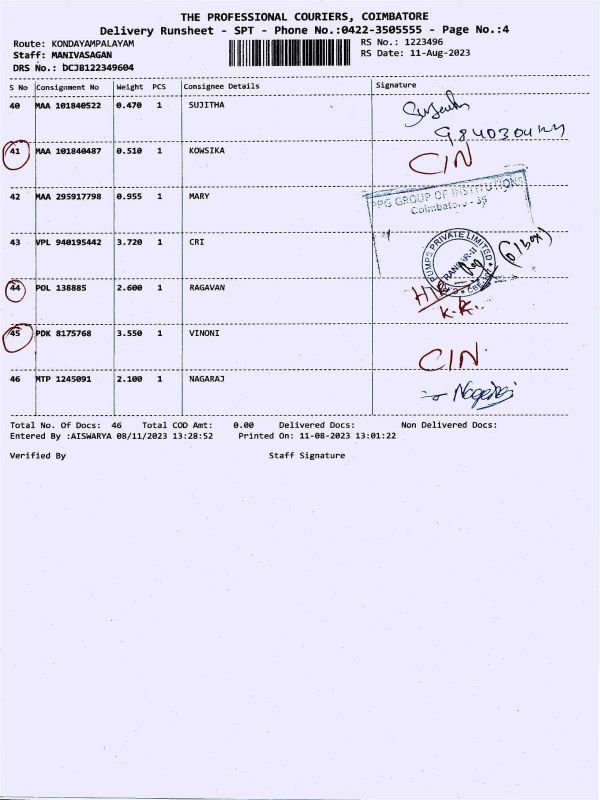 THE PROFESSIONAL COURIERS, COIMBATORE
Delivery Runsheet - SPT - Phone No.:0422-3505555 - Page No.:4
Route: KONDAYAMPALAYAM
Staff: MANIVASAGAN
DRS No.: DCJB122349604
RS No.: 1223496
RS Date: 11-Aug-2023
S No Consignment No Weight PCS Consignee Details Signature
40 MAA 101840522 0.470 1 SUJITHA
41 MAA 101840487 0.510 1 KOWSIKA CIN
42 MAA 295917798 0.955 1 MARY
PPG GROUP OF INSTITUTIONS
Coimbatore - 35
43 VPL 940195442 3.720 1 CRI
PUMPS PRIVATE LIMITED
44 POL 138885 2.600 1 RAGAVAN
K.K.
45 PDK 8175768 3.550 1 VINONI CIN
46 MTP 1245091 2.100 1 NAGARAJ Nagaraj
Total No. Of Docs: 46 Total COD Amt: 0.00 Delivered Docs: Non Delivered Docs:
Entered By :AISWARYA 08/11/2023 13:28:52 Printed On: 11-08-2023 13:01:22
Verified By Staff Signature